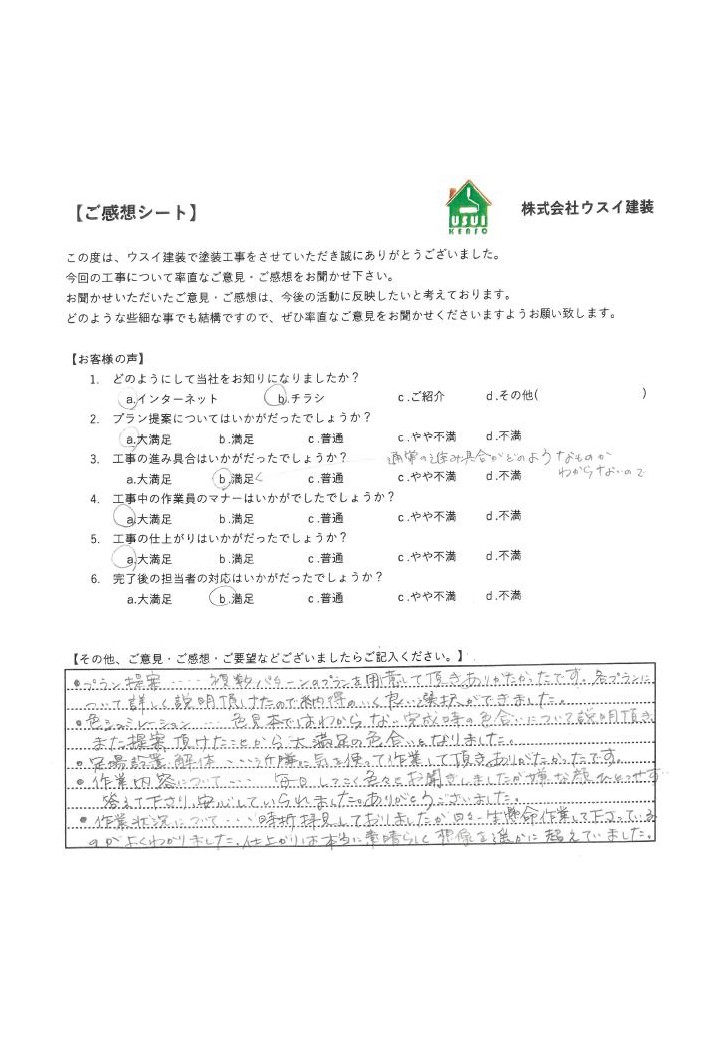 【ご感想シート】
USUI
KENSO
株式会社ウスイ建装
この度は、ウスイ建装で塗装工事をさせていただき誠にありがとうございました。
今回の工事について率直なご意見・ご感想をお聞かせ下さい。
お聞かせいただいたご意見・ご感想は、今後の活動に反映したいと考えております。
どのような些細な事でも結構ですので、ぜひ率直なご意見をお聞かせくださいますようお願い致します。
【お客様の声】
1. どのようにして当社をお知りになりましたか？
a.インターネット b.チラシ c.ご紹介 d.その他( )
2. プラン提案についてはいかがだったでしょうか？
a.大満足 b.満足 c.普通 c.やや不満 d.不満
3. 工事の進み具合はいかがだったでしょうか？ 通常の進み具合がどのようなものか
わからないので
a.大満足 b.満足 c.普通 c.やや不満 d.不満
4. 工事中の作業員のマナーはいかがでしたでしょうか？
a.大満足 b.満足 c.普通 c.やや不満 d.不満
5. 工事の仕上がりはいかがだったでしょうか？
a.大満足 b.満足 c.普通 c.やや不満 d.不満
6. 完了後の担当者の対応はいかがだったでしょうか？
a.大満足 b.満足 c.普通 c.やや不満 d.不満
【その他、ご意見・ご感想・ご要望などございましたらご記入ください。】
●プラン提案‥‥複数パターンのプランを用意して頂きありがたかったです。各プランに
ついて詳しく説明頂けたので納得のいく色い選択ができました。
●色シュミレーション‥‥色見本ではわからない完成時の色合いについて説明頂き
また提案頂けたことから大満足の色合いとなりました。
●足場設置、解体‥‥近隣に気を使って作業して頂きありがたかったです。
●作業内容について‥‥毎日しつこく色々とお聞きしましたが嫌な顔ひとつせず
答えて下さり、安心していられました。ありがとうございました。
●作業状況について‥‥時折拝見しておりましたが日々一生懸命作業して下さっている
のがよくわかりました。仕上がりは本当に素晴らしく想像を遥かに超えていました。